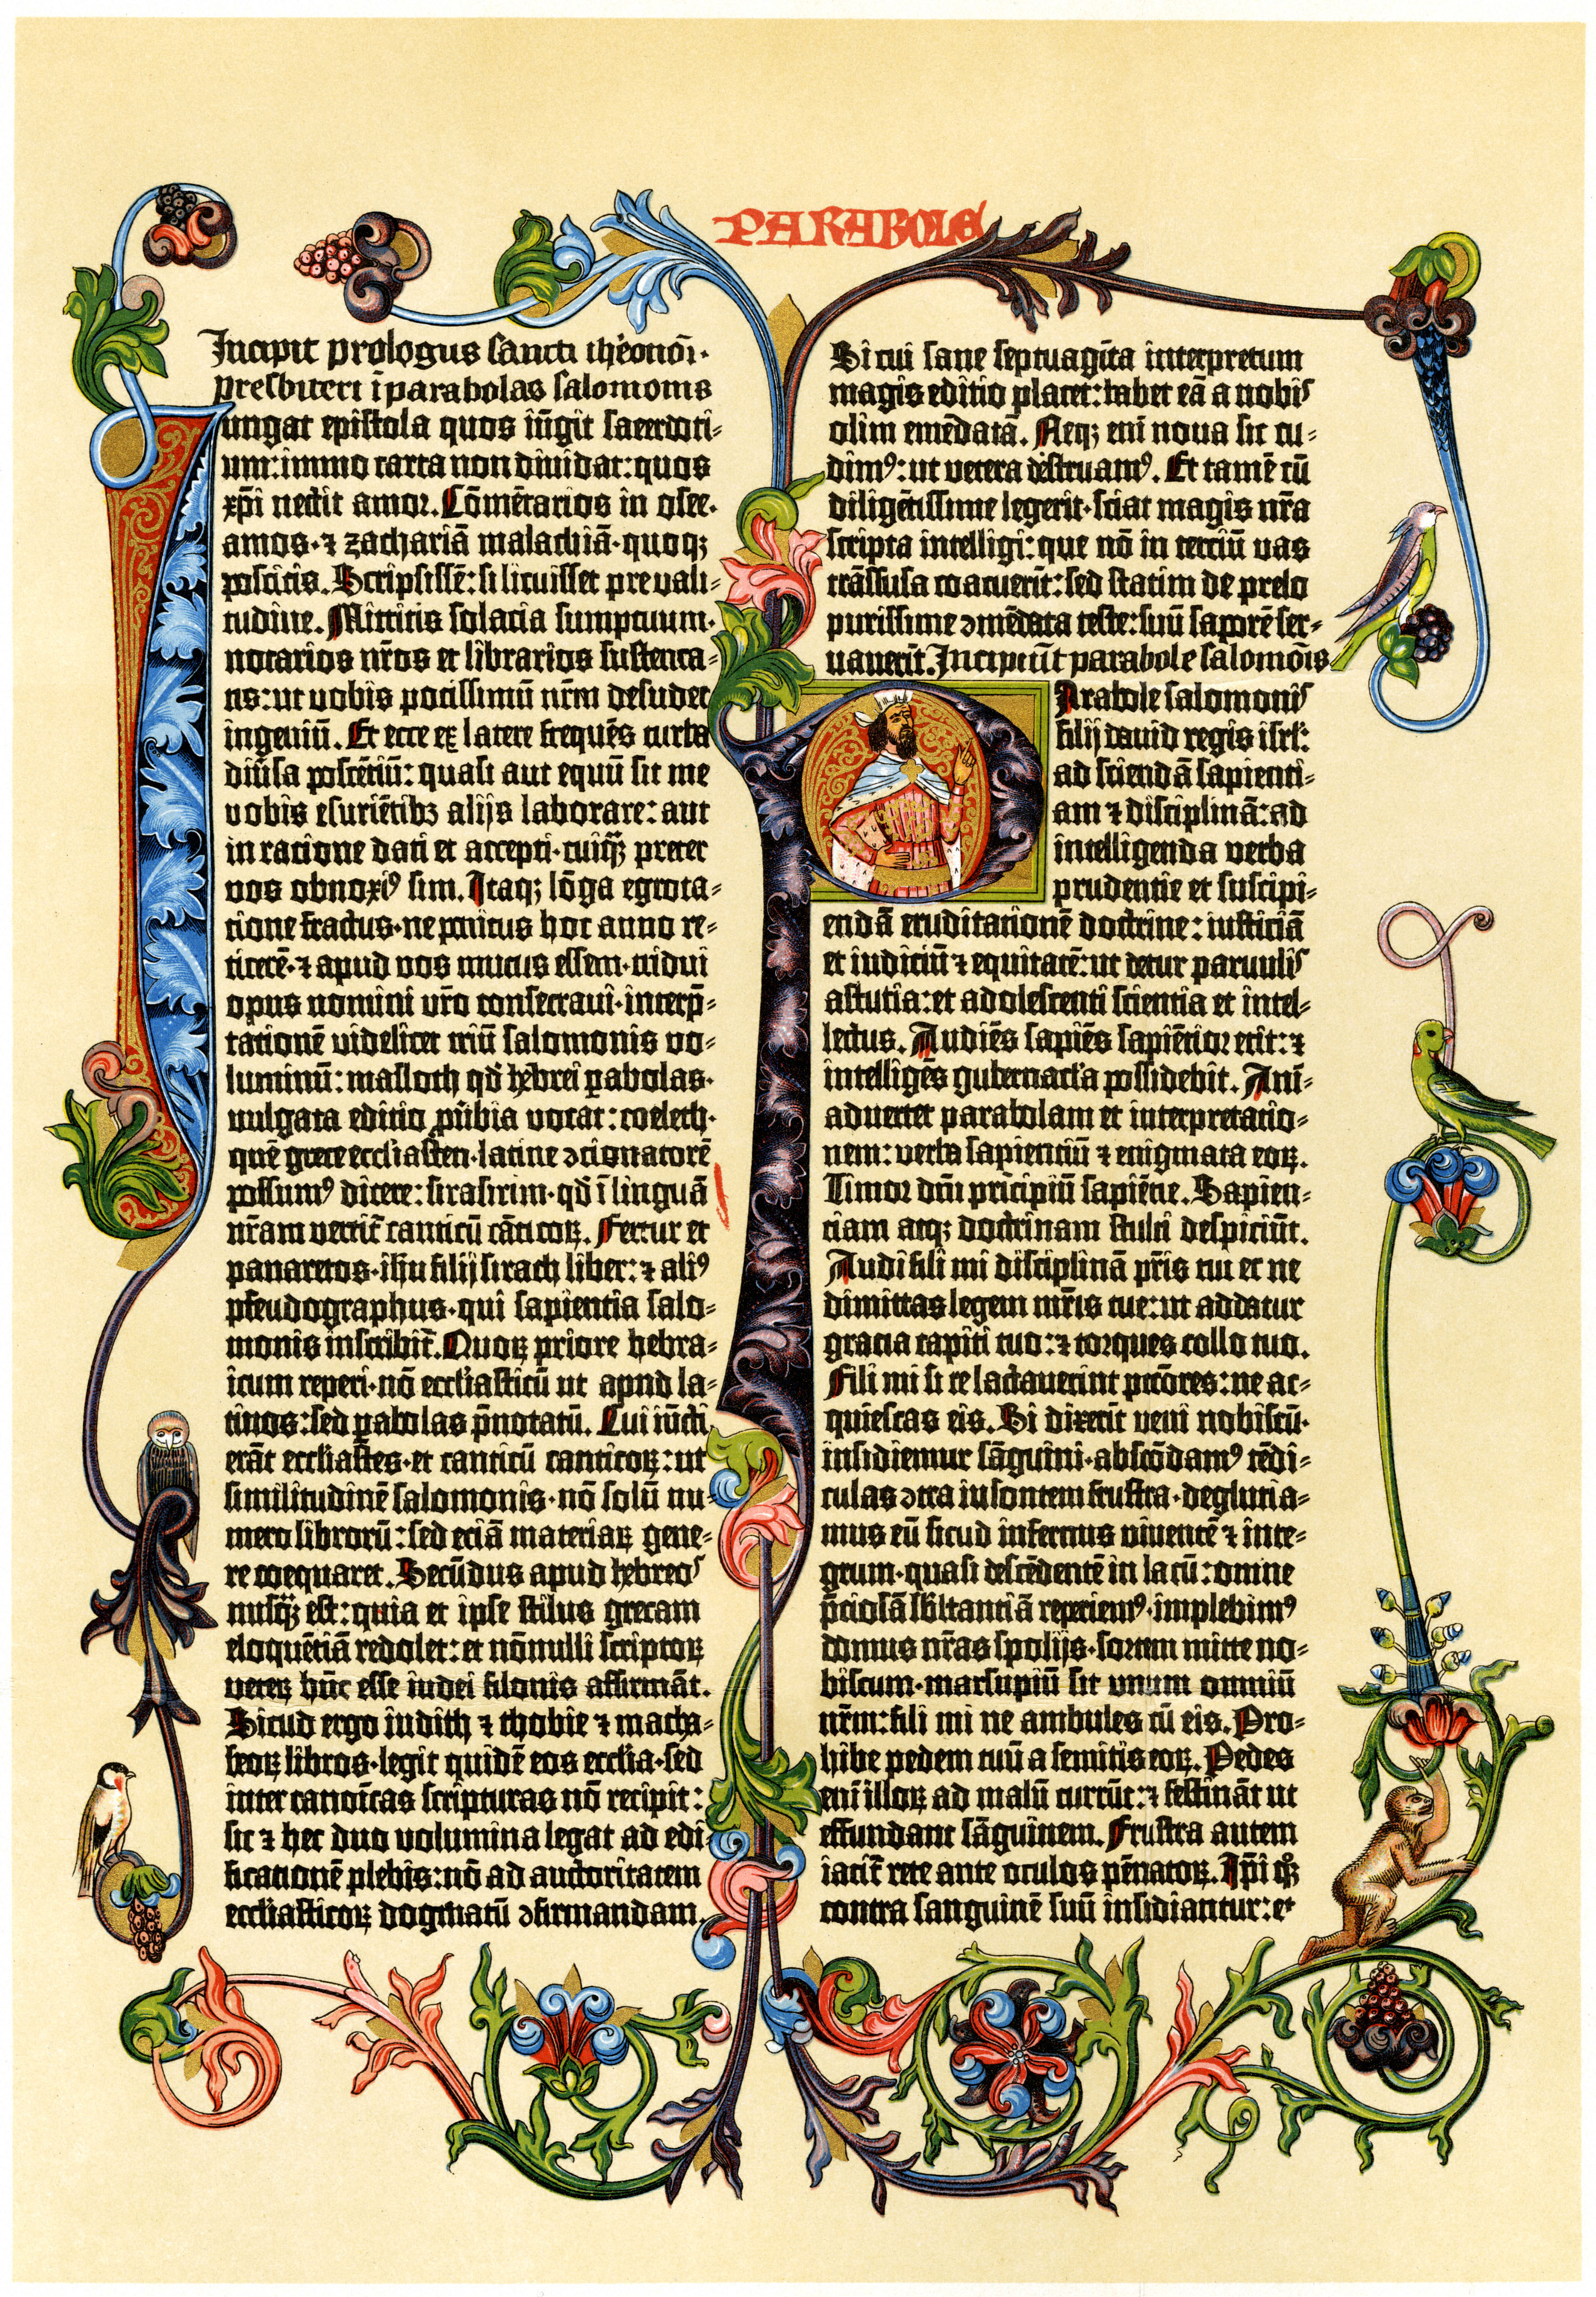 PARABOLE
Incipit prologus sancti iheronimi
presbiteri ī parabolas salomonis
Iungat epistola quos iūgit sacerdoti-
um: immo carta non diuidat: quos
xp̄i nectit amor. Cōmētarios in osee·
amos·⁊ zachariā malachiā·quoqꝫ
poscitis. Scripsissē: si licuisset pre vali-
tudine. Mittitis solacia sumptuum·
notarios nr̄os et librarios sustenta-
tis: ut vobis potissimū nr̄m desudet
ingeniū. Et ecce ex latere frequēs turba
diūsa poscētiū: quasi aut equū sit me
vobis esuriētibꝫ alijs laborare: aut
in racione dati et accepti· cuiqꝫ preter
vos obnoxiꝰ sim. Itaqꝫ lōga egrota-
tione fractus·ne penitus hoc anno re-
ticerē·⁊ apud vos mutus essem·tridui
opus nomini vr̄o consecraui·interp̄-
tationē videlicet triū salomonis vo-
luminū: masloth qd̄ hebrei ꝑabolas·
vulgata editio ꝓūbia vocat: coeleth·
quē grece eccl̄iasten·latine ↄcionatorē
possumꝰ dicere: sirasirim·qd̄ ī linguā
nr̄am vertit̄ canticū cāticoꝝ. Fertur et
panaretos·ih̄u filij sirach liber: ⁊ aliꝰ
pseudographus·qui sapientia salo-
monis inscribit̄. Quoꝝ priorē hebra-
icum reperi·nō eccl̄iasticū ut apud la-
tinos: sed ꝑabolas p̄notatū. Cui iūcti
erāt eccl̄iastes·et canticū canticoꝝ: ut
similitudinē salomonis·nō solū nu-
mero librorū: sed eciā materiaꝝ gene-
re coequaret. Secūdus apud hebreos
nusqꝫ est: quia et ipse stilus grecam
eloquētiā redolet: et nōnulli scriptoꝝ
veteꝝ hūc esse iudei filonis affirmāt.
Sicud ergo iudith ⁊ thobie ⁊ macha-
beoꝝ libros·legit quidē eos eccl̄ia·sed
inter canoīcas scripturas nō recipit:
sic ⁊ hec duo volumina legat ad edi
ficationē plebis: nō ad auctoritatem
eccl̄iasticoꝝ dogmatū ↄfirmandam.
Si cui sane septuagīta interpretum
magis editio placet: habet eā a nobis
olim emēdatā. Neqꝫ enī noua sic cu-
dimꝰ: ut vetera destruamꝰ. Et tamē cū
diligētissime legerit·sciat magis nr̄a
scripta intelligi: que nō in terciū vas
trāsfusa coacuerīt: sed statim de prelo
purissime ↄmēdata teste: suū saporē ser-
uauerīt. Incipiūt parabole salomōis
Parabole salomonis
filij dauid regis isrl̄:
ad sciendā sapienti-
am ⁊ disciplinā: ad
intelligenda verba
prudentie et suscipi-
endā eruditationē doctrine: iusticiā
et iudiciū ⁊ equitatē: ut detur paruulis
astutia: et adolescenti scientia et intel-
lectus. Audiēs sapiēs sapiētior erit: ⁊
intelligēs gubernacl̄a possidebit. Ani-
aduertet parabolam et interpretatio-
nem: verba sapientiū ⁊ enigmata eoꝝ.
Timor dn̄i prīcipiū sapiētie. Sapien-
tiam atqꝫ doctrinam stulti despiciūt.
Audi fili mi disciplinā pr̄is tui et ne
dimittas legem mr̄is tue: ut addatur
gracia capiti tuo: ⁊ torques collo tuo.
Fili mi si te lactauerint pctōres: ne ac-
quiescas eis. Si dixerīt veni nobiscū·
insidiemur sāguini·abscōdamꝰ tēdi-
culas ↄtra insontem frustra·degluria-
mus eū sicud infernus viuentē ⁊ inte-
grum·quasi descēdentē in lacū: omne
p̄ciosā sb̄stantiā reperiemꝰ·implebimꝰ
domus nr̄as spolijs·sortem mitte no-
biscum·marsupiū sit unum omniū
nr̄m: fili mi ne ambules cū eis. Pro-
hibe pedem tuū a semitis eoꝝ. Pedes
enī illoꝝ ad malū currūt: ⁊ festināt ut
effundant sāguinem. Frustra autem
iacit̄ rete ante oculos pēnatoꝝ. Ip̄i qꝫ
contra sanguinē suū insidiantur: et